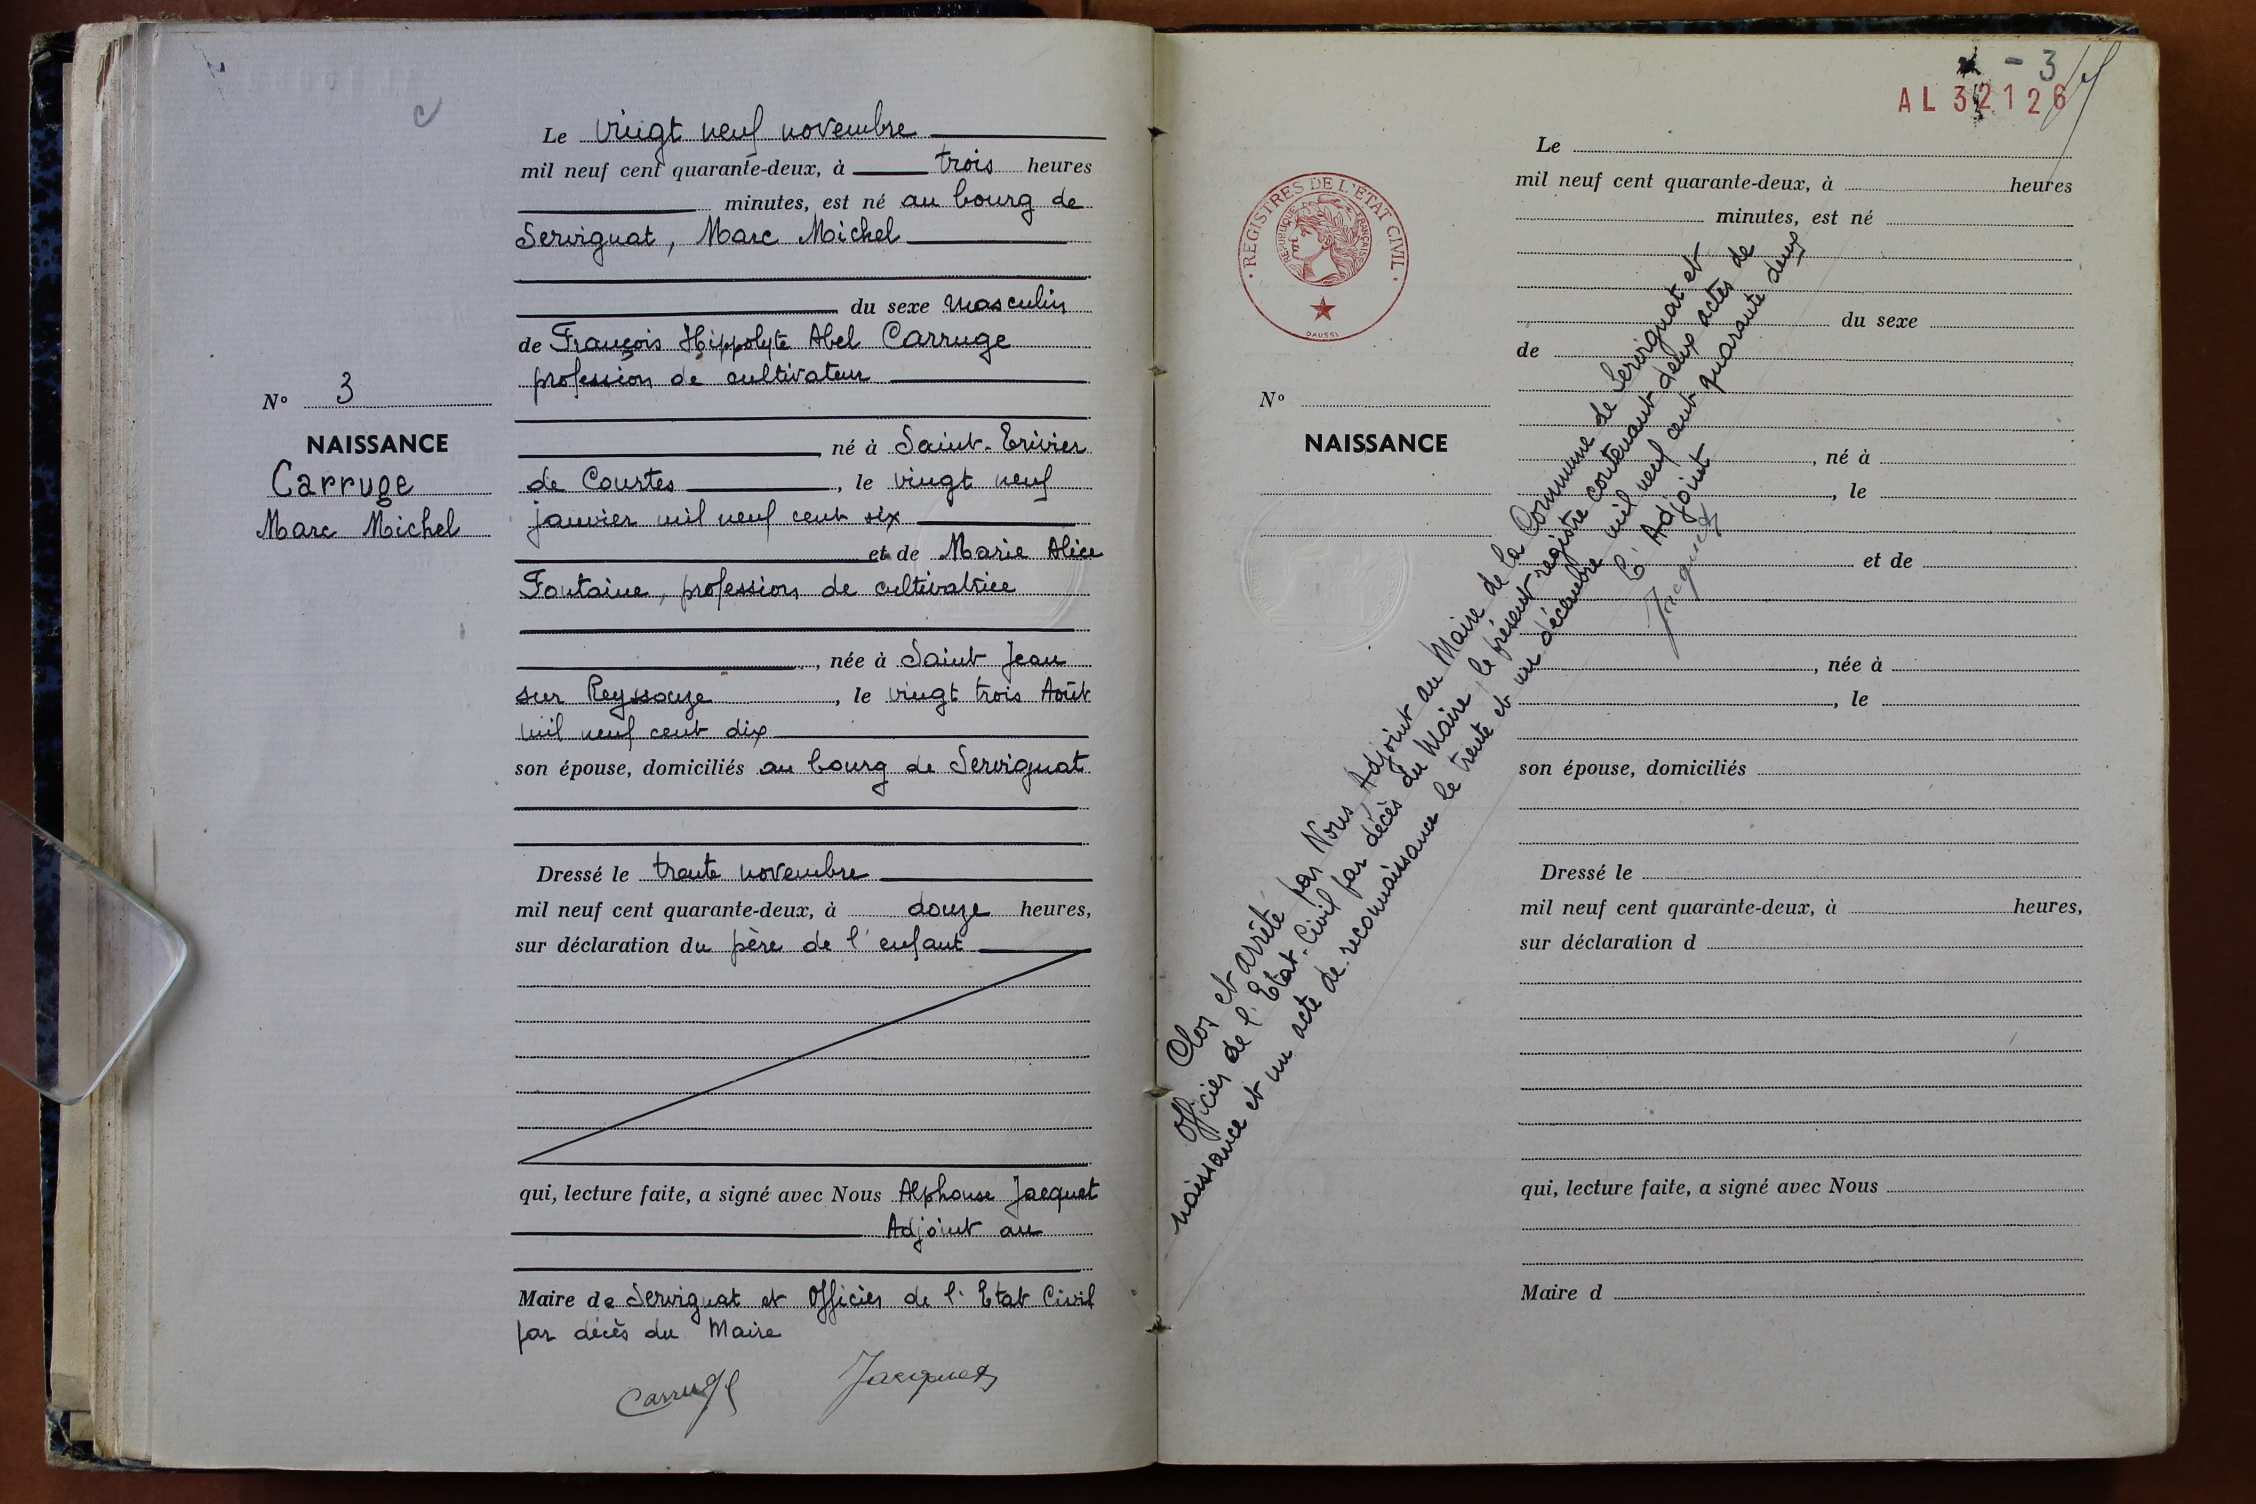 Le vingt neuf novembre
mil neuf cent quarante-deux, à trois heures
minutes, est né au bourg de
Servignat, Marc Michel
du sexe masculin
de François Hippolyte Abel Carruge
profession de cultivateur
N° 3
NAISSANCE
Carruge
Marc Michel
né à Saint-Trivier
de Courtes, le vingt neuf
janvier mil neuf cent six
et de Marie Alice
Fontaine, profession de cultivatrice
, née à Saint Jean
sur Reyssouze, le vingt trois Août
mil neuf cent dix
son épouse, domiciliés au bourg de Servignat
Dressé le trente novembre
mil neuf cent quarante-deux, à douze heures,
sur déclaration du père de l'enfant
qui, lecture faite, a signé avec Nous Alphonse Jacquet
Adjoint au
Maire de Servignat et Officier de l'Etat Civil
par décès du Maire
Carruge Jacquet
- 3
AL 32126
REGISTRES DE L'ETAT CIVIL
REPUBLIQUE FRANÇAISE
DAUSSI
Le
mil neuf cent quarante-deux, à heures
minutes, est né
du sexe
de
N°
NAISSANCE
, né à
, le
et de
, née à
, le
son épouse, domiciliés
Dressé le
mil neuf cent quarante-deux, à heures,
sur déclaration d
qui, lecture faite, a signé avec Nous
Maire d
Clos et arrêté par Nous, Adjoint au Maire de la Commune de Servignat et
Officier de l'Etat-Civil par décès du Maire, le présent registre contenant deux actes de
naissance et un acte de reconnaissance le trente et un décembre mil neuf cent quarante deux
L'Adjoint
Jacquet